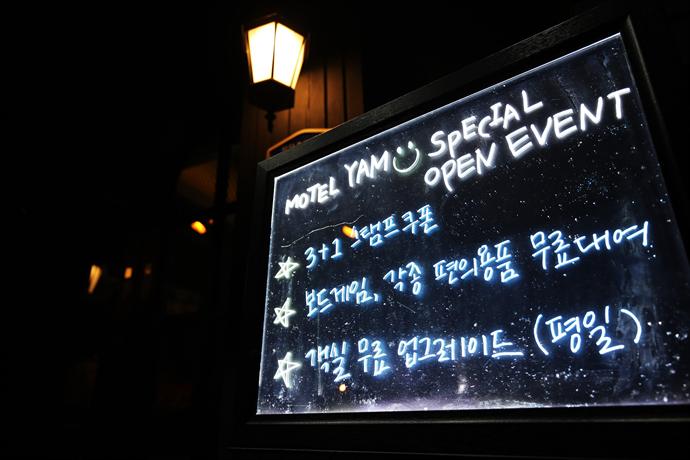 MOTEL YAM SPECIAL
OPEN EVENT
3+1 스탬프쿠폰
보드게임, 각종 편의용품 무료대여
객실 무료 업그레이드 (평일)